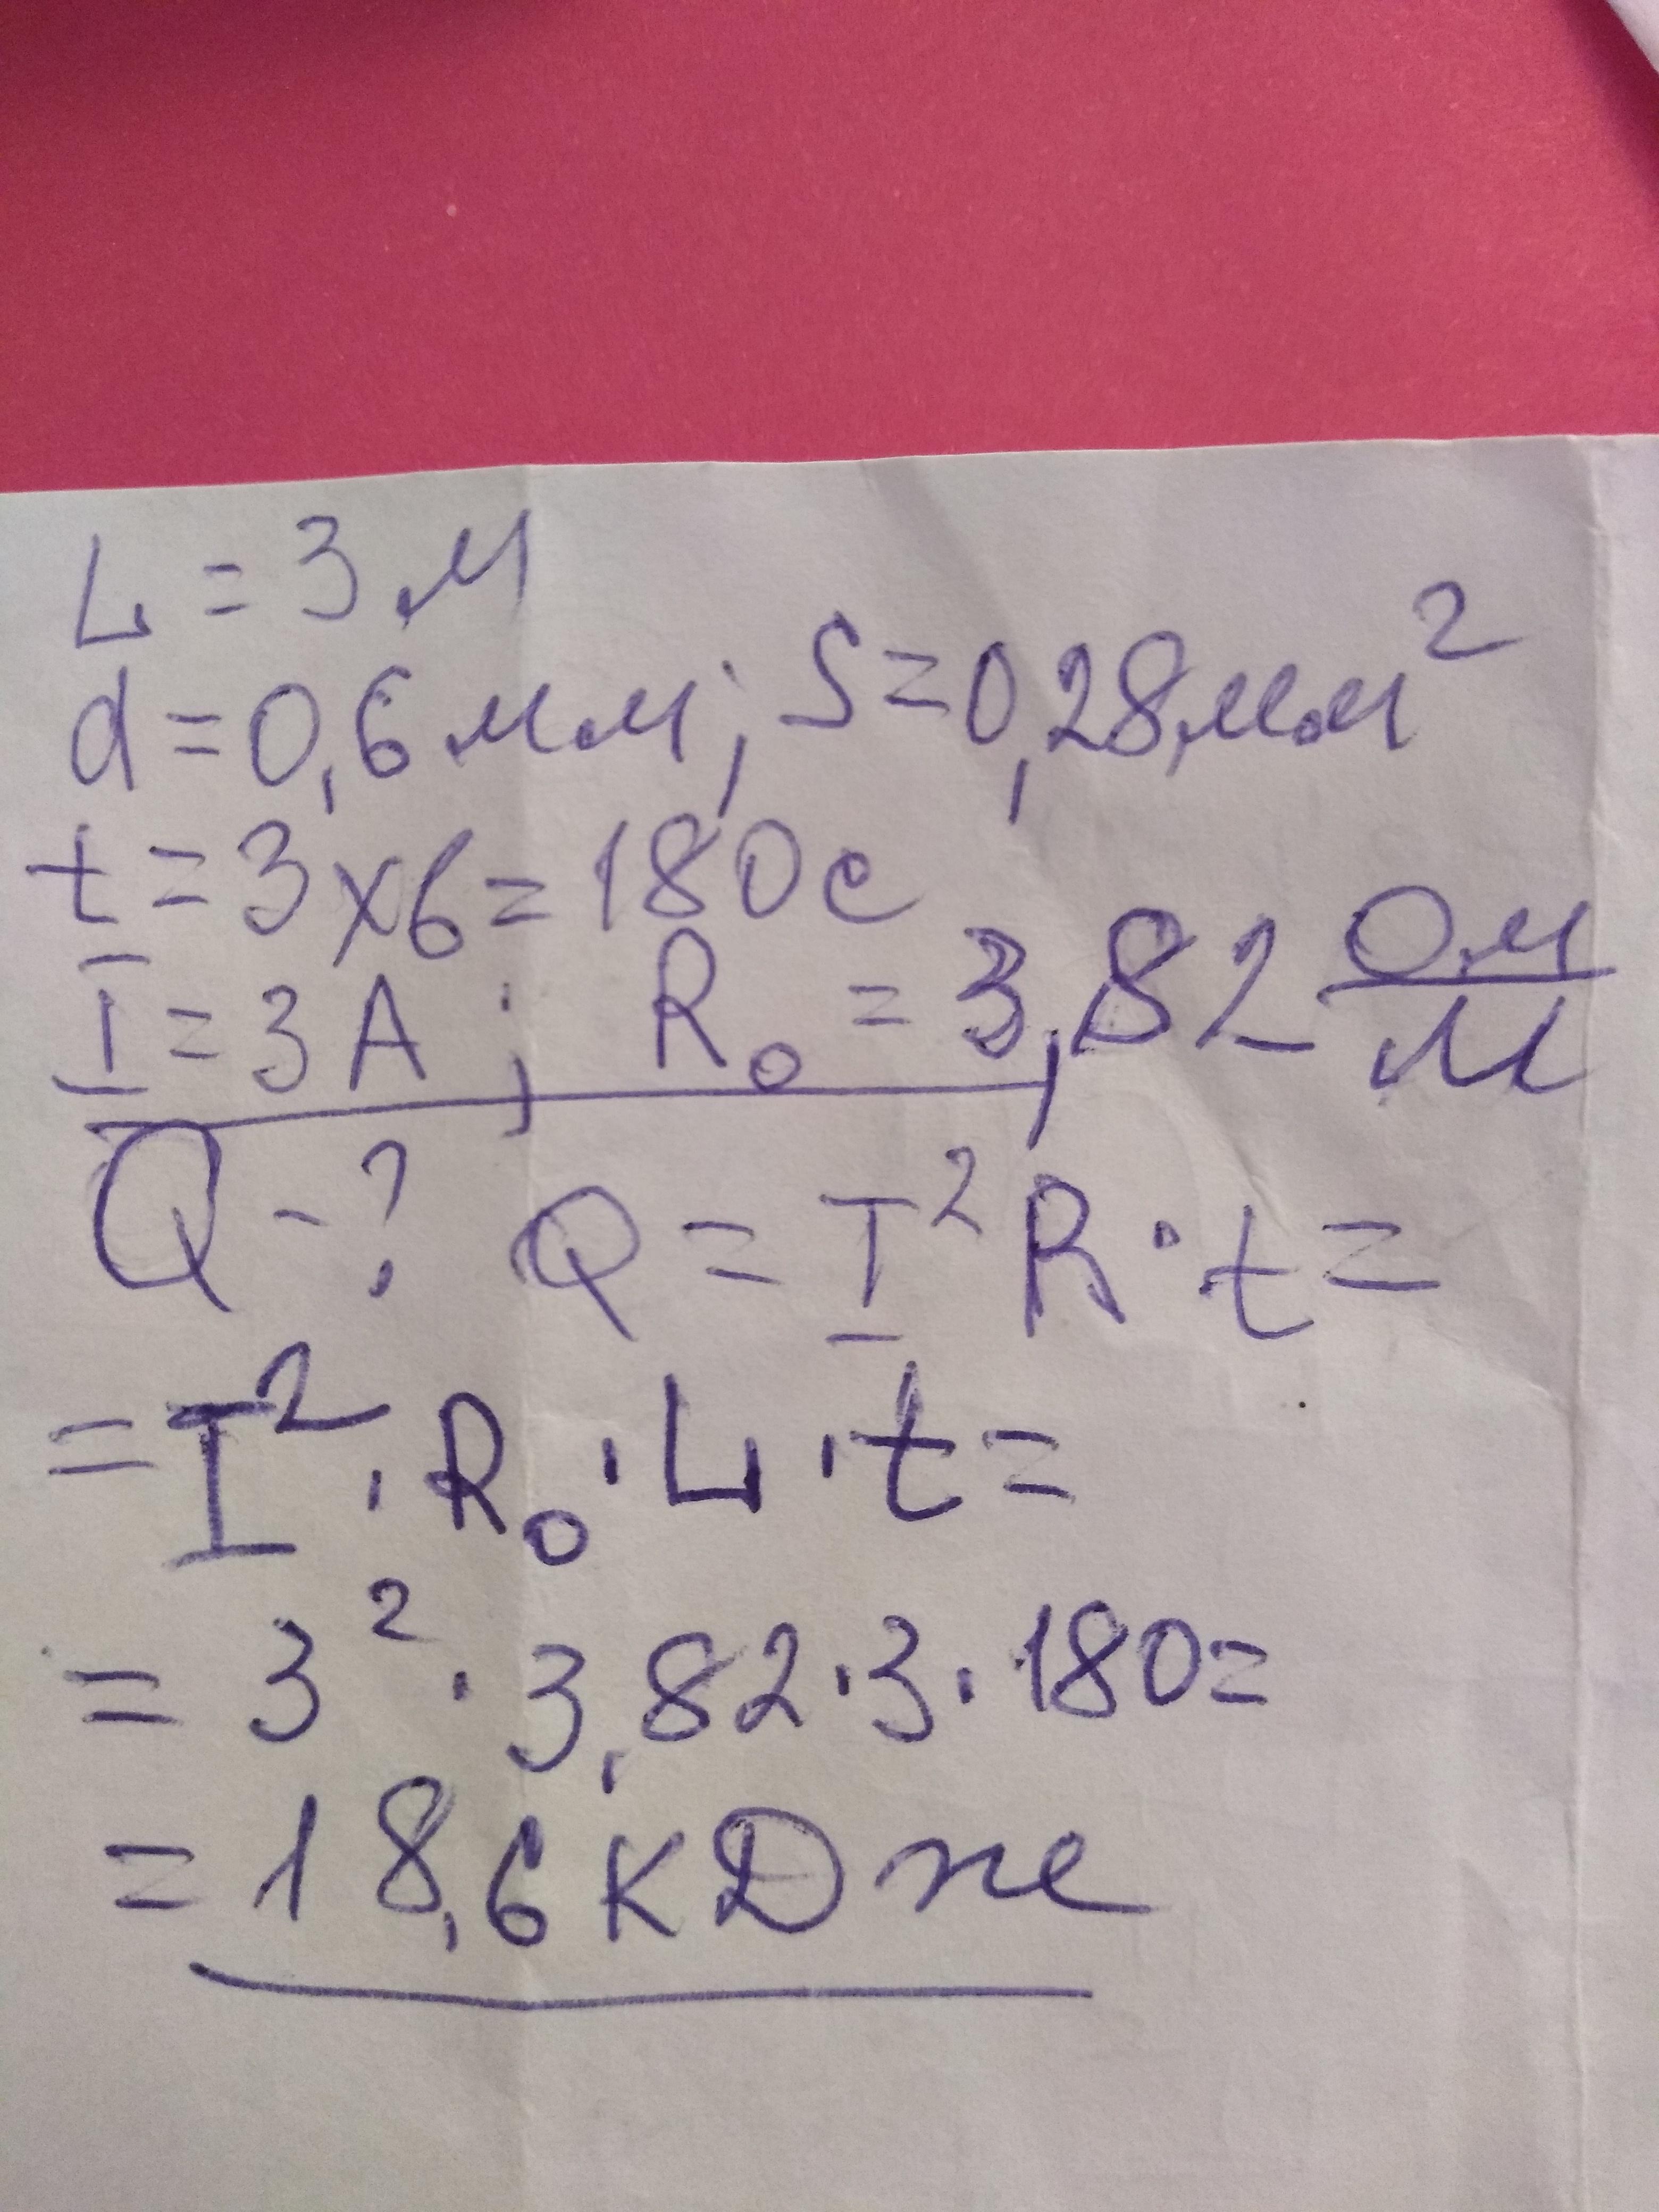 L = 3 м
d = 0,6 мм; S = 0,28 мм²
t = 3 x 6 = 180 с
I = 3 А ; R₀ = 3,82 Ом/м
Q - ? Q = I² R · t =
= I² · R₀ · L · t =
= 3² · 3,82 · 3 · 180 =
= 18,6 кДже